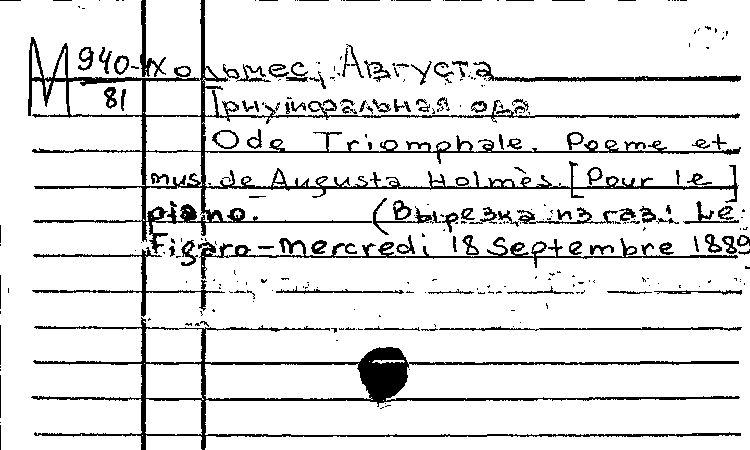 М 940-4 Хольмес, Августа
81 Триумфальная ода
Ode Triomphale. Poeme et
mus. de Augusta Holmès. [Pour le]
piano. (Вырезка из газ.: Le
Figaro-Mercredi 18 Septembre 1889